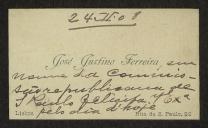 24-II-08
José Gustino Ferreira, em
nome da Commis-
são republicana de
S. Paulo felicita V. Exª
pelo dia d'hoje
Lisboa Rua de S. Paulo, 26